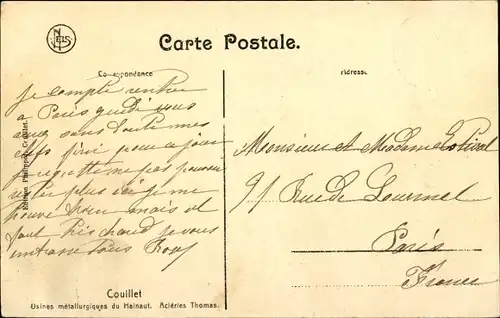 NELS
Carte Postale.
Correspondance
Adresse
Je compte rentrer
a Paris jeudi vous
avez sans doute mes
clefs fini pour a jour
je regrette ne pas pouvoir
rester plus ici je me
trouve bien mais il
fait très chaud je vous
embrasse tous
Monsieur et Madame
91 Rue de Lourmel
Paris
France
Edition
Couillet
Usines métallurgiques du Hainaut. Aciéries Thomas.